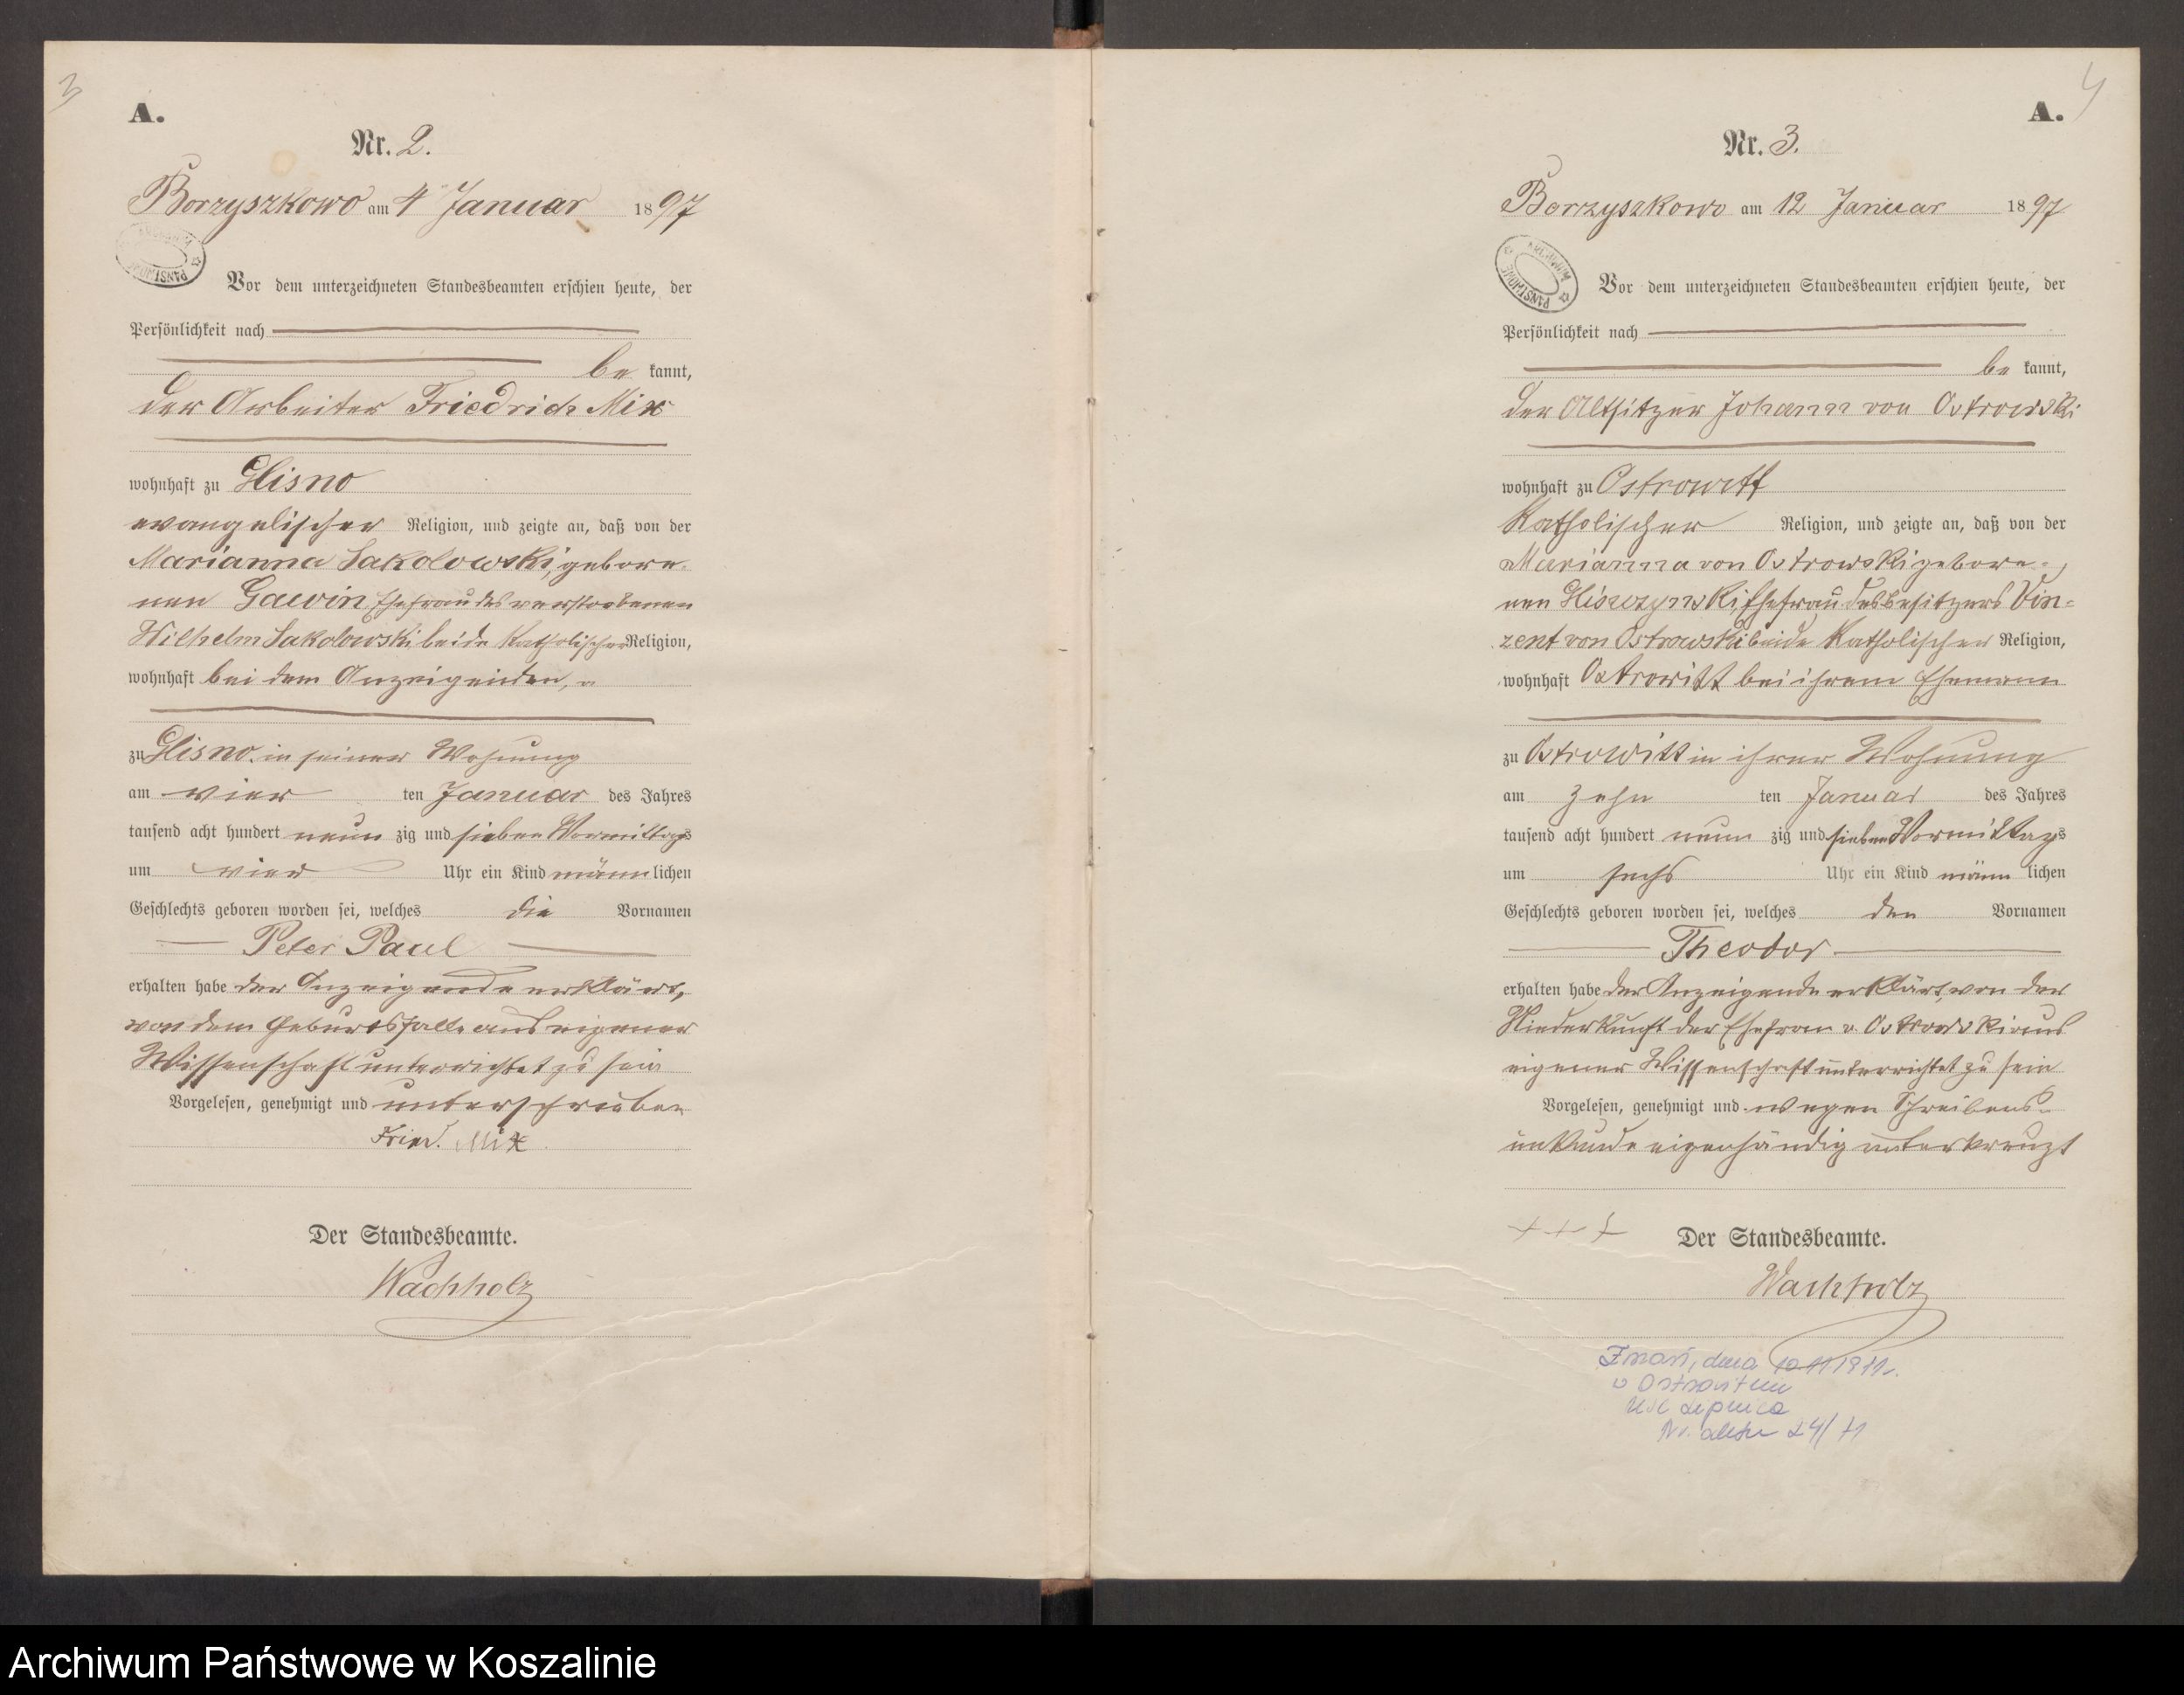 3
A.
Nr. 2.
Borzyszkowo am 4 Januar 1897
Vor dem unterzeichneten Standesbeamten erschien heute, der
Persönlichkeit nach
be kannt,
der Arbeiter Friedrich Mix
wohnhaft zu Glisno
evangelischer Religion, und zeigte an, daß von der
Marianna Sakolowski, gebore-
nen Gawin, Ehefrau des verstorbenen
Wilhelm Sakolowski beide katholischer Religion,
wohnhaft bei dem Anzeigenden,
zu Glisno in seiner Wohnung
am vier ten Januar des Jahres
tausend acht hundert neun zig und sieben Vormittags
um vier Uhr ein Kind männ lichen
Geschlechts geboren worden sei, welches die Vornamen
Peter Paul
erhalten habe der Anzeigende erklärt,
von dem Geburtsfalle aus eigener
Wissenschaft unterrichtet zu sein
Vorgelesen, genehmigt und unterschrieben
Fried. Mix
Der Standesbeamte.
Wachholz
4
A.
Nr. 3.
Borzyszkowo am 12 Januar 1897
PAŃSTWOWE
Vor dem unterzeichneten Standesbeamten erschien heute, der
Persönlichkeit nach
be kannt,
der Altsitzer Johann von Ostrowski
wohnhaft zu Ostrowitt
katholischer Religion, und zeigte an, daß von der
Marianna von Ostrowski gebore-
nen Ehefrau des Besitzers Vin-
zent von Ostrowski beide katholischer Religion,
wohnhaft Ostrowitt bei ihrem Ehemann
zu Ostrowitt in ihrer Wohnung
am zehn ten Januar des Jahres
tausend acht hundert neun zig und sieben Vormittags
um sechs Uhr ein Kind männ lichen
Geschlechts geboren worden sei, welches den Vornamen
Theodor
erhalten habe der Anzeigende erklärt, von der
Niederkunft der Ehefrau v. Ostrowski aus
eigener Wissenschaft unterrichtet zu sein
Vorgelesen, genehmigt und wegen Schreibens-
unkunde eigenhändig unterkreuzt
+ + +
Der Standesbeamte.
Wachholz
Zmarł, dnia
w Ostrowitem
USC Lipnica
Nr. aktu 24/71
Archiwum Państwowe w Koszalinie